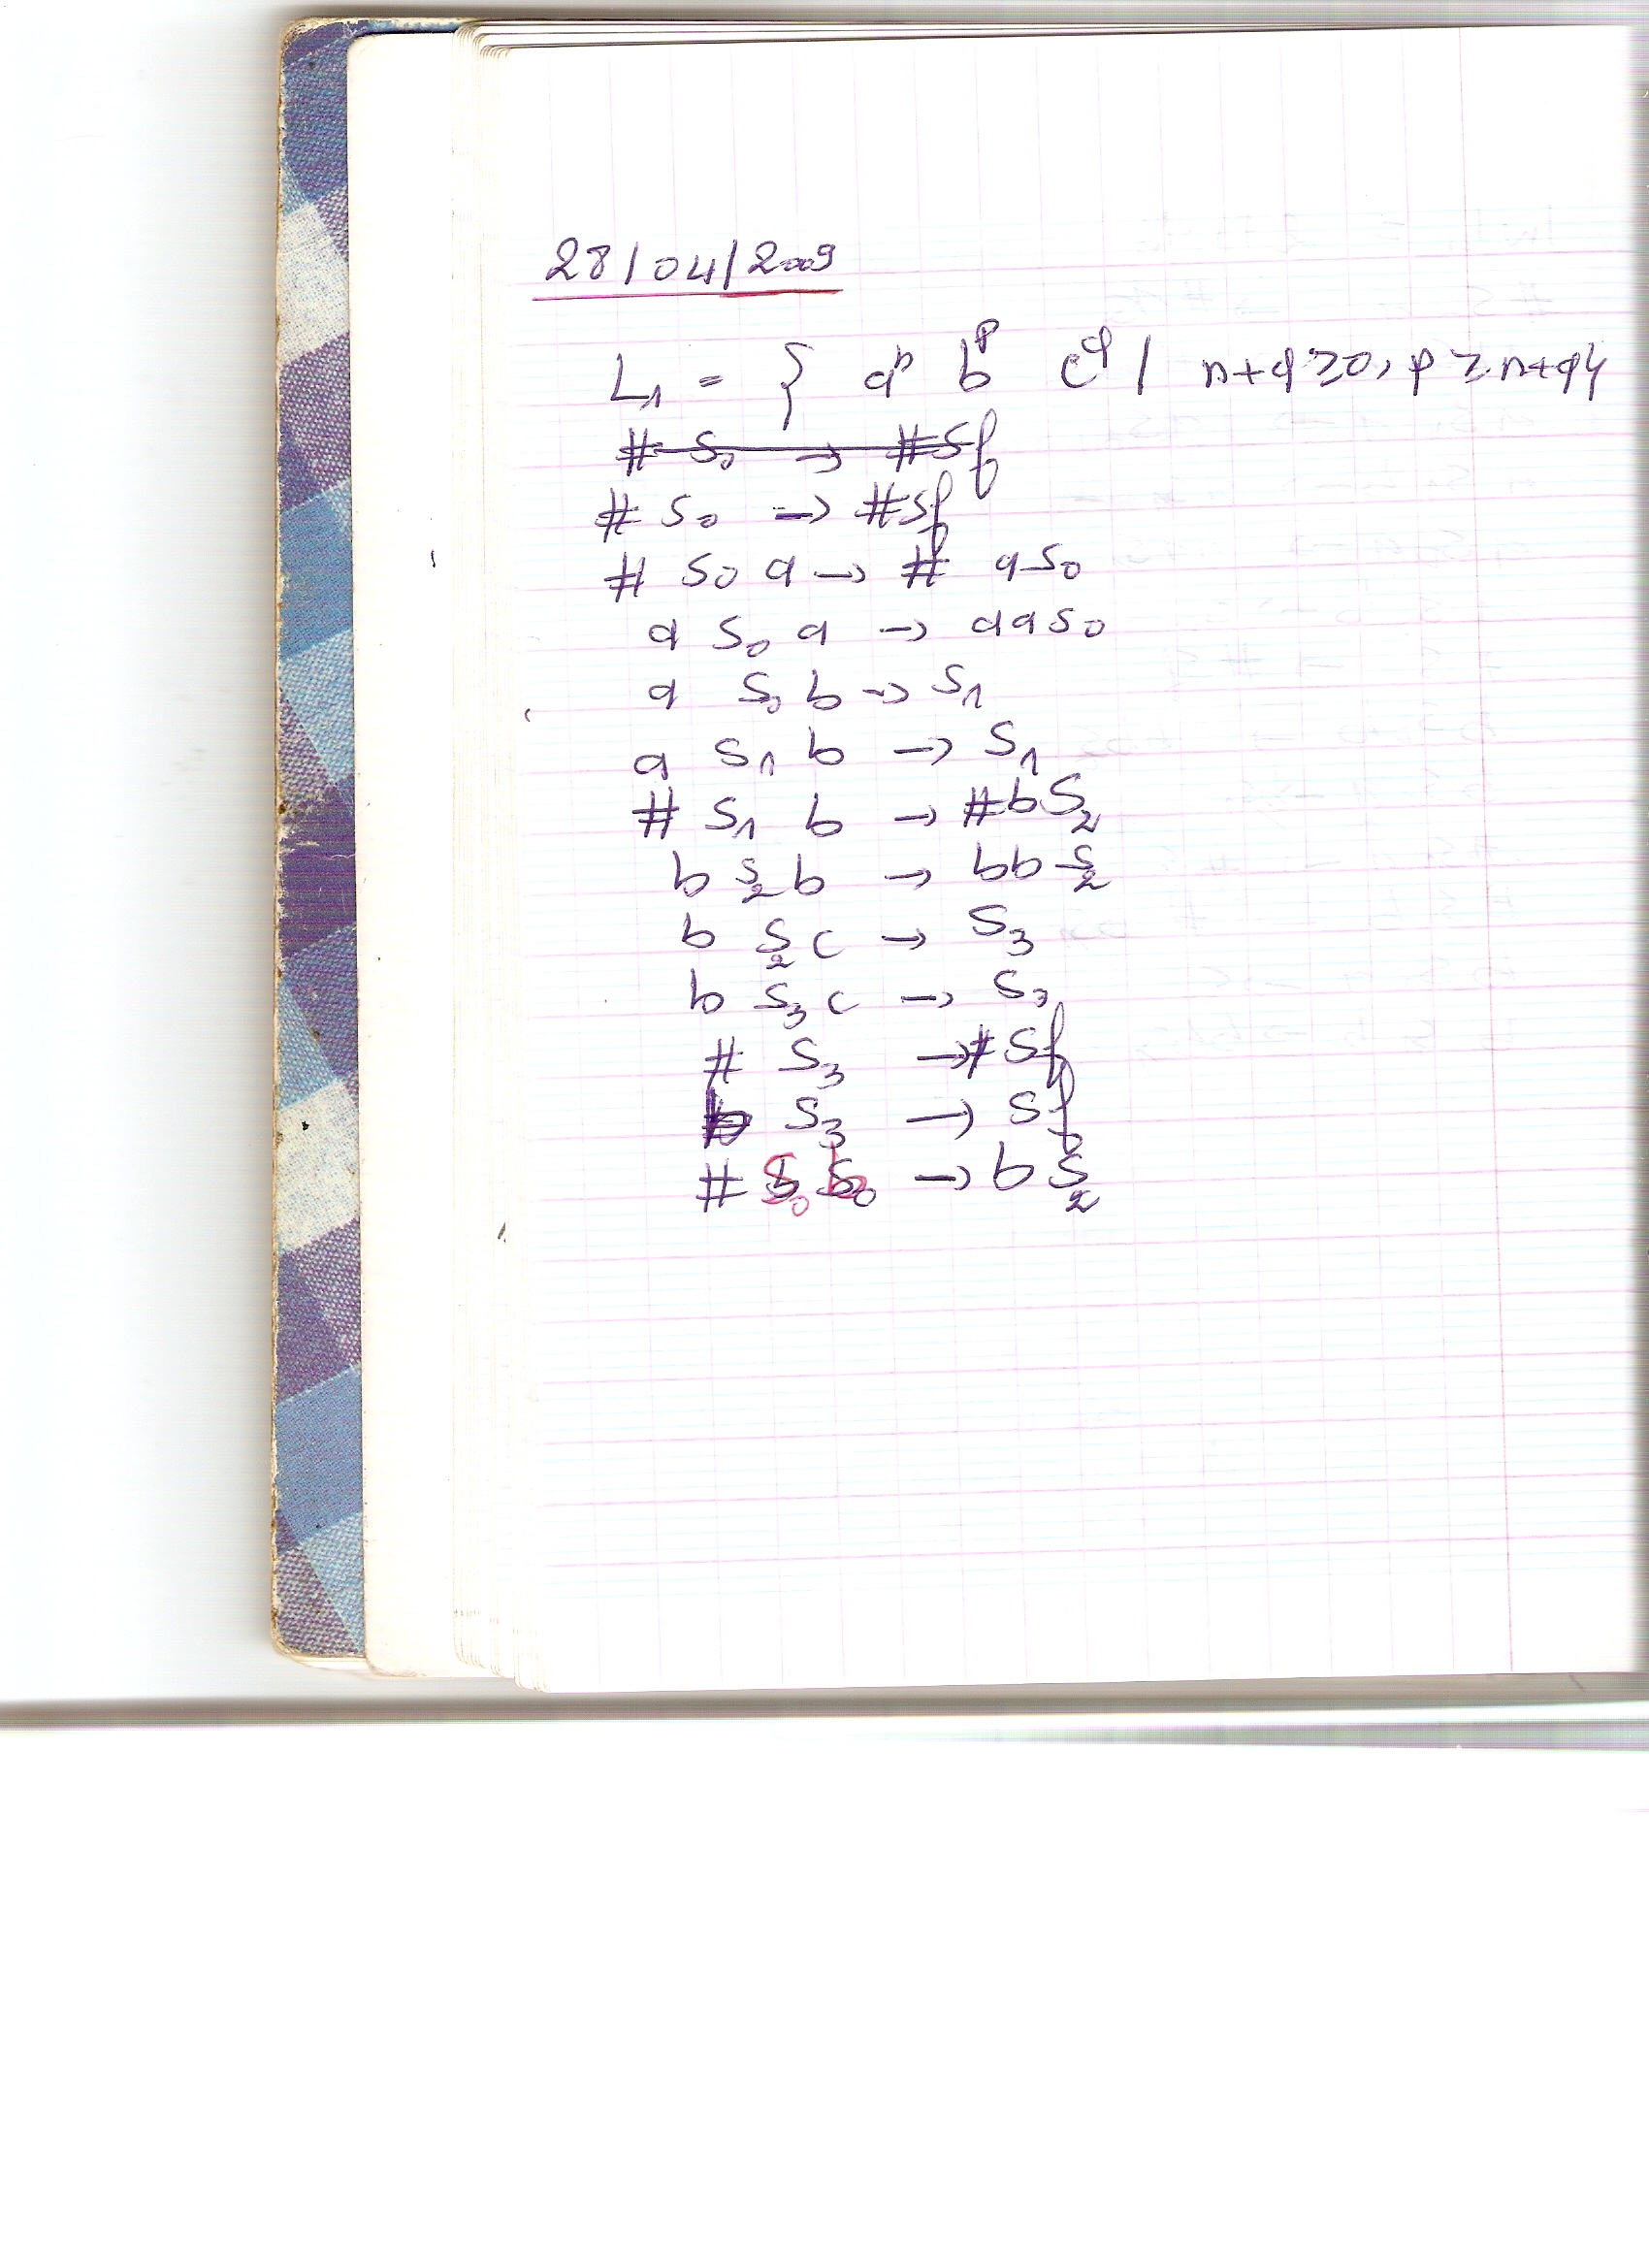 28/04/2009
L₁ = { aⁿ bᵖ c^q / n+q≥0, p≥n+q}
# S₀ → #Sf
# S₀ → #Sf
# S₀ a → # aS₀
a S₀ a → aaS₀
a S₀ b → S₁
a S₁ b → S₁
# S₁ b → #bS₂
b S₂ b → bb S₂
b S₂ c → S₃
b S₃ c → S₃
# S₃ → #Sf
b S₃ → Sf
# S₀ b → b S₂